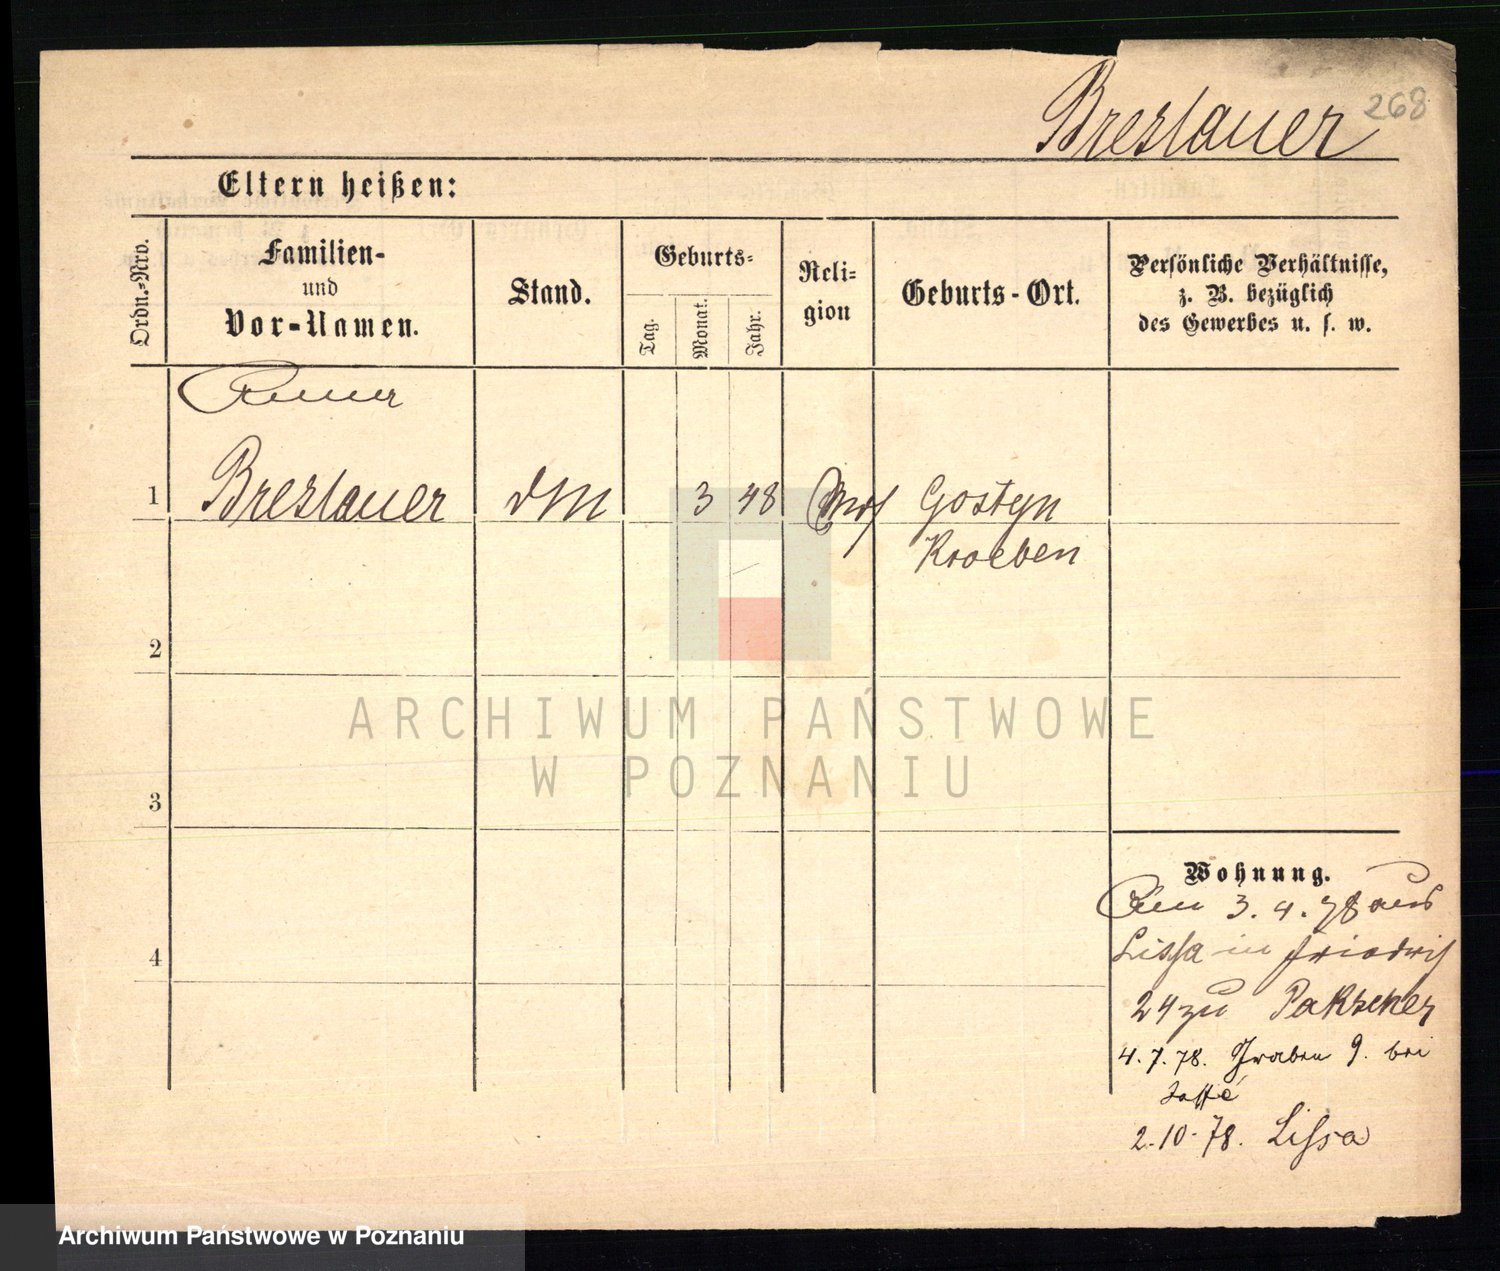 268
Breslauer
Eltern heißen:
Ordn.-Nro.
Familien-
und
Vor-Namen.
Stand.
Geburts-
Tag.
Monat.
Jahr.
Reli-
gion
Geburts-Ort.
Persönliche Verhältnisse,
z. B. bezüglich
des Gewerbes u. s. w.
1
Breslauer
3 48
Gostyn
Kroeben
2
3
4
Wohnung.
3. 4. 78 aus
Lissa in Friedrich
24 zu Pakscher
4. 7. 78. Graben 9. bei
Jaffé
2. 10. 78. Lissa
ARCHIWUM PAŃSTWOWE
W POZNANIU
Archiwum Państwowe w Poznaniu